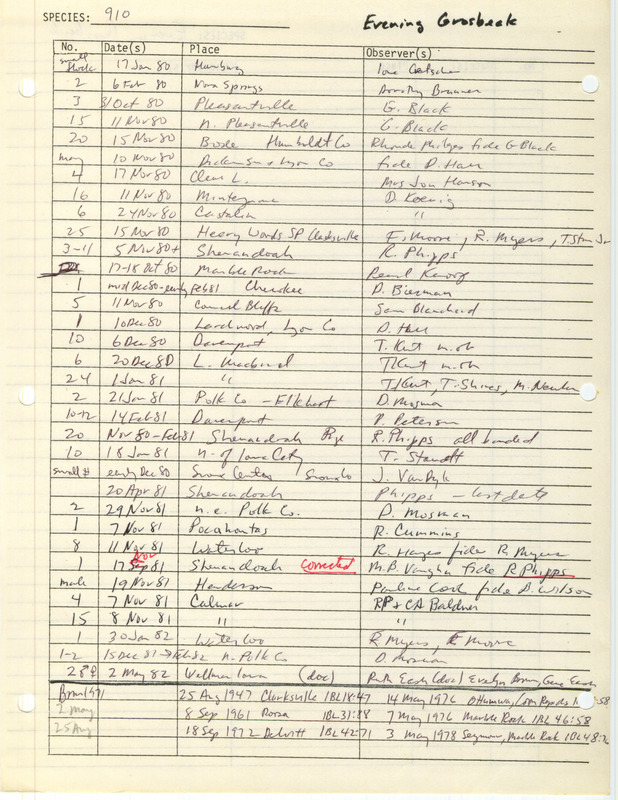 SPECIES: 910 Evening Grosbeak
No. Date(s) Place Observer(s)
small flock 17 Jan 80 Hamburg Ione Getscher
2 6 Feb 80 Nora Springs Dorothy Brunner
3 31 Oct 80 Pleasantville G. Black
15 11 Nov 80 n. Pleasantville G. Black
20 15 Nov 80 Boode Humboldt Co Rhonda Phillips fide G Black
many 10 Nov 80 Dickinson & Lyon Co fide D. Harr
4 17 Nov 80 Clear L. Mrs Jan Hanson
16 11 Nov 80 D. Koenig
6 24 Nov 80 Castalia "
25 15 Nov 80 Heery Woods SP Clarksville F. Moore, R. Myers, T. Stan Jr
3-11 5 Nov 80+ Shenandoah R. Phipps
17-18 Oct 80 Marble Rock Pearl Knoop
1 mid Dec 80-early Feb 81 Cherokee D. Bierman
5 11 Nov 80 Council Bluffs Sam Blanchard
1 10 Dec 80 Larchwood, Lyon Co D. Harr
10 6 Dec 80 Davenport T. Kent m.ob
6 20 Dec 80 L. Macbride T Kent m.ob
24 1 Jan 81 " T Kent, T. Shires, M. Newlon
2 21 Jan 81 Polk Co - Elkhart D. Mosman
10-12 14 Feb 81 Davenport P. Peterson
20 Nov 80-Feb 81 Shenandoah Page R. Phipps all banded
10 18 Jan 81 n. of Iowa City T. Staudt
small # early Dec 80 Sioux Center Sioux Co J. VanDyk
20 Apr 81 Shenandoah Phipps - last date
2 29 Nov 81 n.e. Polk Co. D. Mosman
1 7 Nov 81 Pocahontas R. Cummins
8 11 Nov 81 Waterloo R. Hayes fide R Myers
1 17 Sep Nov 81 Shenandoah Corrected M.B. Vaughn fide R Phipps
male 19 Nov 81 Henderson Pauline Cook fide B. Wilson
4 7 Nov 81 Calmar RP & CA Baldner
15 8 Nov 81 " "
1 30 Jan 82 Waterloo R Myers, F Moore
1-2 15 Dec 81 → Feb 82 n. Polk Co D. Mosman
2♂♀ 2 May 82 Wellman Iowa (doc) Ruth Easch (doc) Evelyn
25 Aug 1947 Clarksville IBL 18:47 14 May 1976 Ottumwa, :58
2 May 8 Sep 1961 IBL 31:88 7 May 1976 Marble Rock IBL 46:58
25 Aug 18 Sep 1972 DeWitt IBL 42:71 3 May 1978 Seymour, Marble Rock IBL 48: